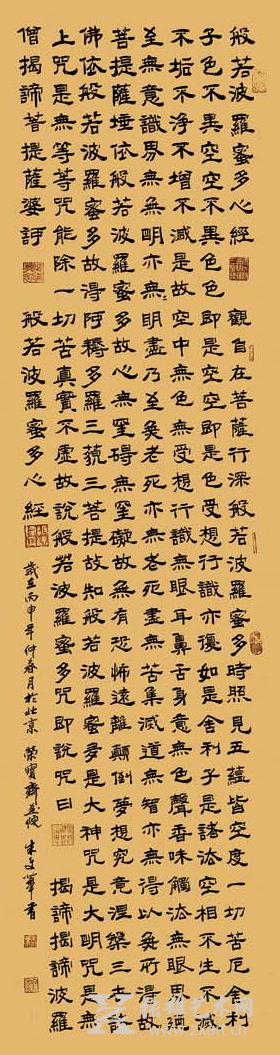 般若波羅蜜多心經 觀自在菩薩行深般若波羅蜜多時照見五蘊皆空度一切苦厄舍利
子色不異空空不異色色即是空空即是色受想行識亦復如是舍利子是諸法空相不生不滅
不垢不淨不增不減是故空中無色無受想行識無眼耳鼻舌身意無色聲香味觸法無眼界迺
至無意識界無無明亦無明盡乃至無老死亦無老死盡無苦集滅道無智亦無得以無所得故
菩提薩埵依般若波羅蜜多故心無罣碍無罣礙故無有恐怖遠離顛倒夢想究竟涅槃三世諸
佛依般若波羅蜜多故得阿耨多羅三藐三菩提故知般若波羅蜜多是大神咒是大明咒是無
上咒是無等等咒能除一切苦真實不虛故說般若波羅蜜多咒即說咒曰 揭諦揭諦波羅
僧揭諦菩提薩婆訶 般若波羅蜜多心經 歲在丙申年仲春月於北京 榮寶齋 書